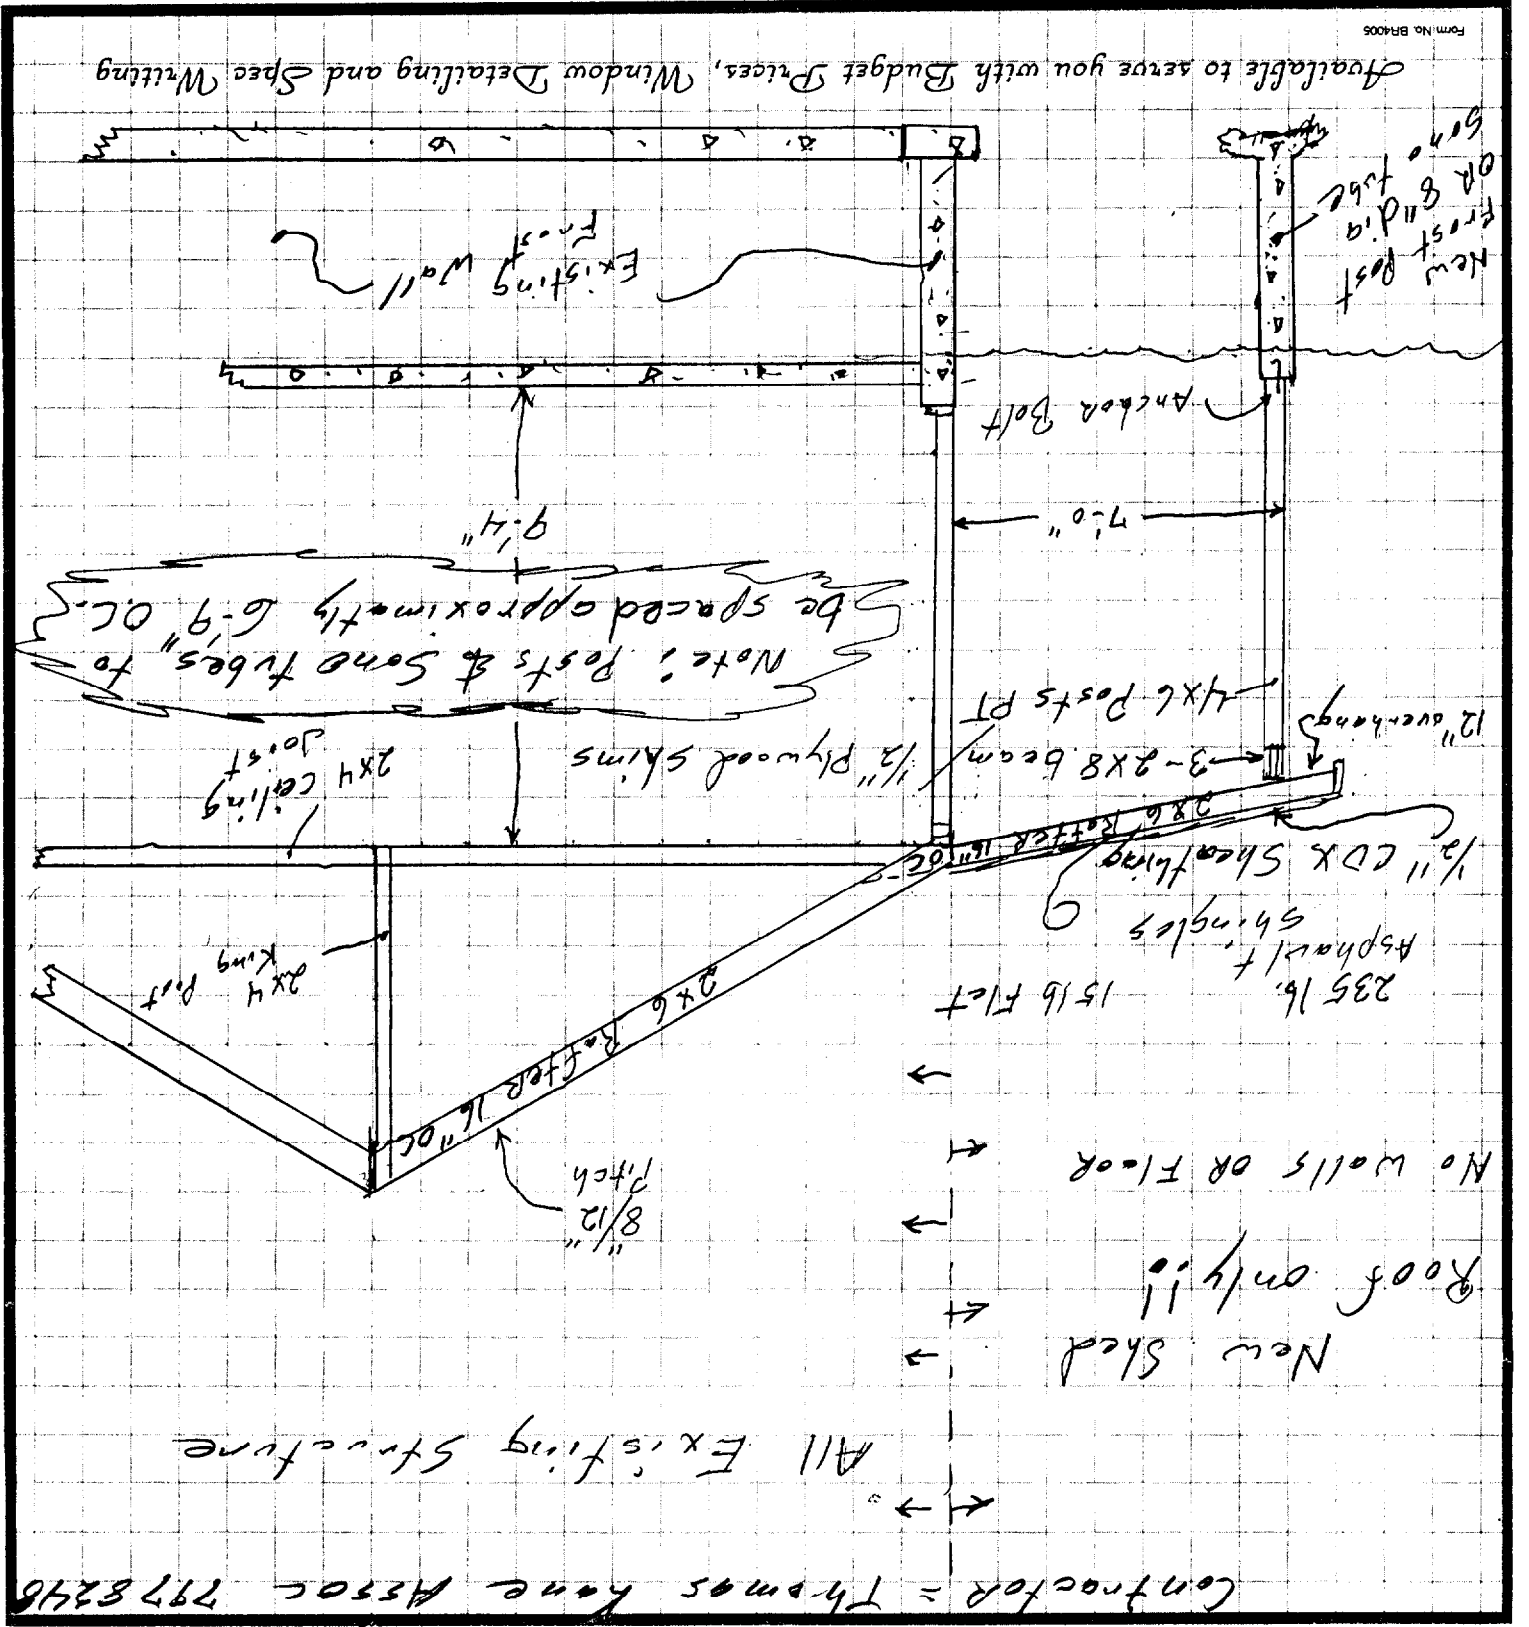 Contractor = Thomas Kane Assoc 7978248
All Existing Structure
New Shed
Roof only!!
No walls OR Floor
8"/12"
Pitch
235 lb.
Asphault
Shingles
15 lb Flet
1/2" CDX Sheathing
12" overhang
2x6 Rafter 16" OC
2x6 Rafter 16" OC
2x4
King Post
2x4 ceiling
Joist
3-2x8 beam
1/2" Plywood Shims
4x6 Posts PT
Note: Posts & Sono tubes, to
be spaced approximatly 6'-9" O.C.
9'-4"
7'-0"
Anchor Bolt
Existing
Frost Wall
New
Frost Post
OR 8" dia
Sono tube
Available to serve you with Budget Prices, Window Detailing and Spec Writing
Form No. BR4005